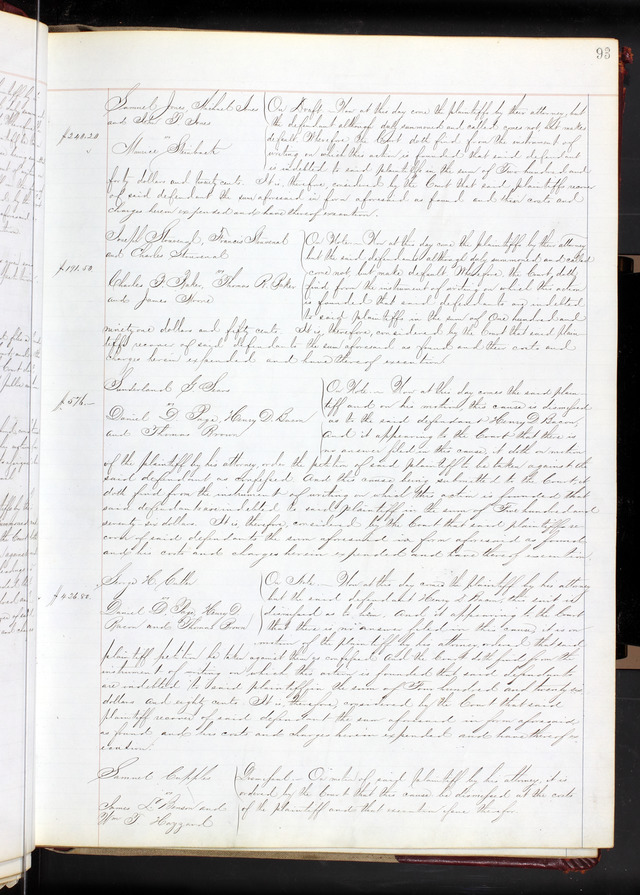 93
Samuel Jones, Michael Jones On Draft — Now at this day come the plaintiffs by their attorney, but
and John P. Jones the defendant although duly summoned and called comes not but makes
$240.20 default. Wherefore, the Court doth find from the instrument of
vs writing on which this action is founded that said defendant
Maurice Steinback is indebted to said plaintiffs in the sum of Two hundred and
forty dollars and twenty cents. It is, therefore, considered by the Court that said plaintiffs recover
of said defendant the sum aforesaid in form aforesaid as found and their costs and
charges herein expended and have thereof execution.
Joseph Francis and Charles On Note — Now at this day come the plaintiffs by their attorney
but the said defendants although duly summoned and called
$191.50 come not, but make default. Wherefore, the Court doth
Charles F. vs Thomas R. find from the instrument of writing on which this action
and James is founded that said defendants are indebted
to said plaintiffs in the sum of One hundred and
ninety one dollars and fifty cents. It is, therefore, considered by the Court that said plain-
tiffs recover of said defendants the sum aforesaid as found and their costs and
charges herein expended and have thereof execution.
On Note — Now at this day comes the said plain-
$576.— tiff and on his motion, this cause is dismissed
vs as to the said defendant Henry D. Bacon,
Daniel D. Page, Henry D. Bacon And it appearing to the Court that there is
and Thomas Brown no answer filed in this cause, it doth on motion
of the plaintiff by his attorney order the petition of said plaintiff to be taken against the
said defendant as confessed. And this cause being submitted to the Court it
doth find from the instrument of writing on which this action is founded that
said defendants are indebted to said plaintiff in the sum of Five hundred and
seventy six dollars. It is, therefore, considered by the Court that said plaintiff re-
cover of said defendants the sum aforesaid in form aforesaid as found
and his costs and charges herein expended and have thereof execution.
H. On Note — Now at this day comes the plaintiff by his attorney
$426.80 but the said defendant Henry D. Bacon this cause is
vs dismissed as to him. And, it appearing to the Court
Daniel D. Page, Henry D. that there is no answer filed in this cause, it is on
Bacon and Thomas Brown motion of the plaintiff by his attorney ordered that said
plaintiff petition be taken against them as confessed. And the Court doth find from the
instrument of writing on which this action is founded that said defendants
are indebted to said plaintiff in the sum of Four hundred and twenty six
dollars and eighty cents. It is, therefore, considered by the Court that said
plaintiff recover of said defendant the sum aforesaid in form aforesaid
as found and his costs and charges herein expended and have thereof ex-
ecution.
Samuel Cupples Dismissed — On motion of said plaintiff by his attorney, it is
vs ordered by the Court that this cause be dismissed at the costs
James L. and of the plaintiff and that execution issue therefor.
Wm. T. Hazzard